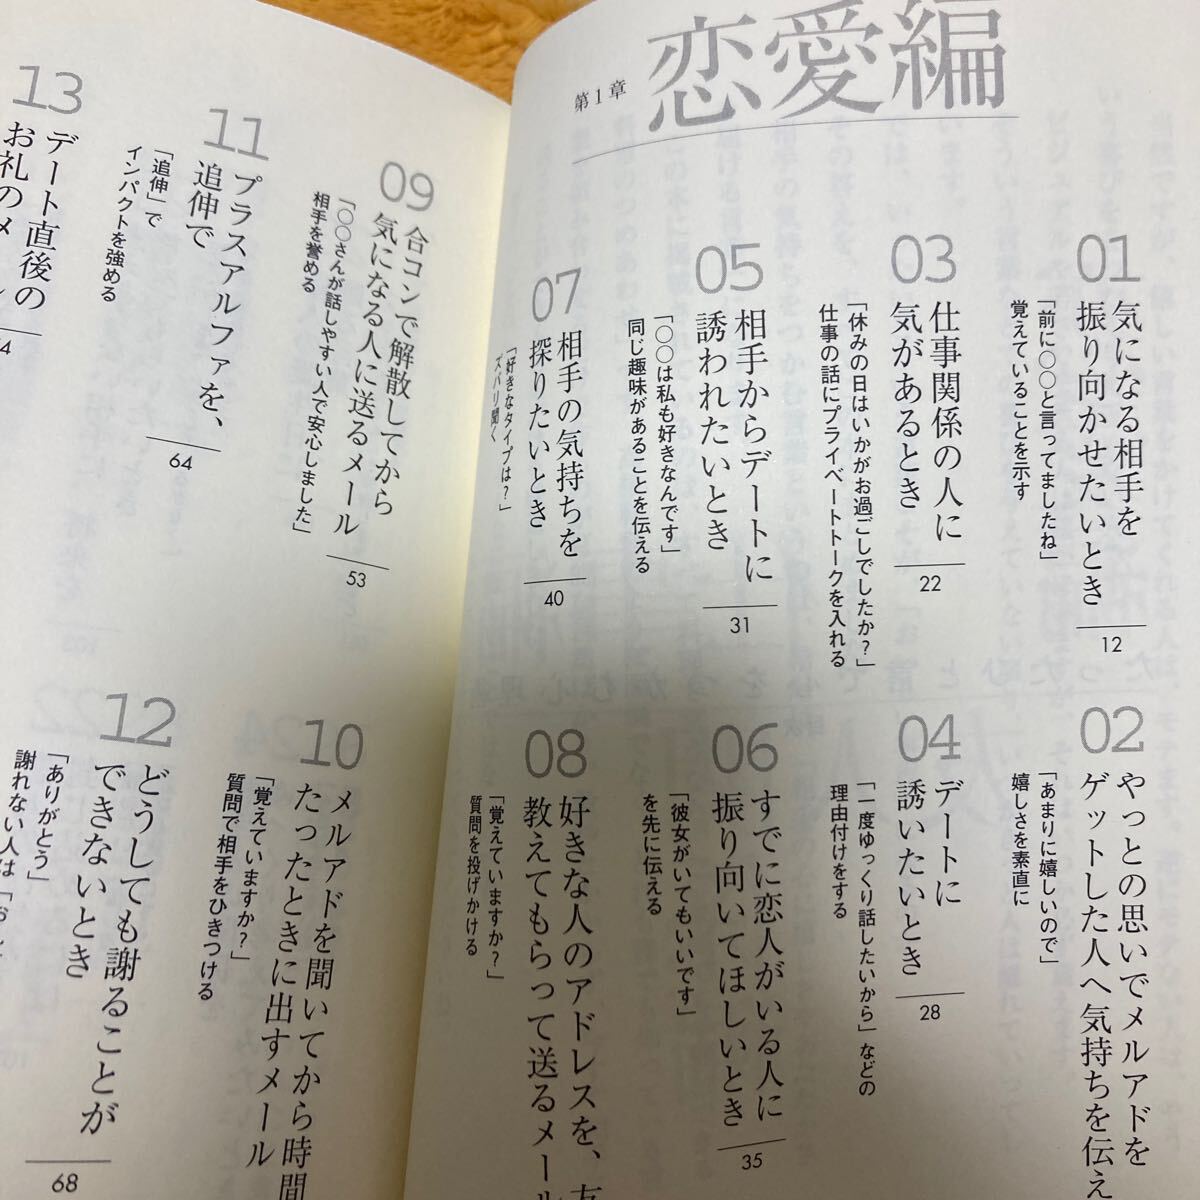 第1章
恋愛編
01
気になる相手を
振り向かせたいとき
「前に〇〇と言ってましたね」
覚えていることを示す
12
02
やっとの思いでメルアドを
ゲットした人へ気持ちを伝え
「あまりに嬉しいので」
嬉しさを素直に
03
仕事関係の人に
気があるとき
「休みの日はいかがお過ごしでしたか?」
仕事の話にプライベートトークを入れる
22
04
デートに
誘いたいとき
「一度ゆっくり話したいから」などの
理由付けをする
28
05
相手からデートに
誘われたいとき
「〇〇は私も好きなんです」
同じ趣味があることを伝える
31
06
すでに恋人がいる人に
振り向いてほしいとき
「彼女がいてもいいです」
を先に伝える
35
07
相手の気持ちを
探りたいとき
「好きなタイプは?」
ズバリ聞く
40
08
好きな人のアドレスを、友
教えてもらって送るメール
「覚えていますか?」
質問を投げかける
09
合コンで解散してから
気になる人に送るメール
「〇〇さんが話しやすい人で安心しました」
相手を誉める
53
10
メルアドを聞いてから時間
たったときに出すメール
「覚えていますか?」
質問で相手をひきつける
11
プラスアルファを、
追伸で
「追伸」で
インパクトを強める
64
12
どうしても謝ることが
できないとき
「ありがとう」
謝れない人は「お
68
13
デート直後の
お礼のメール